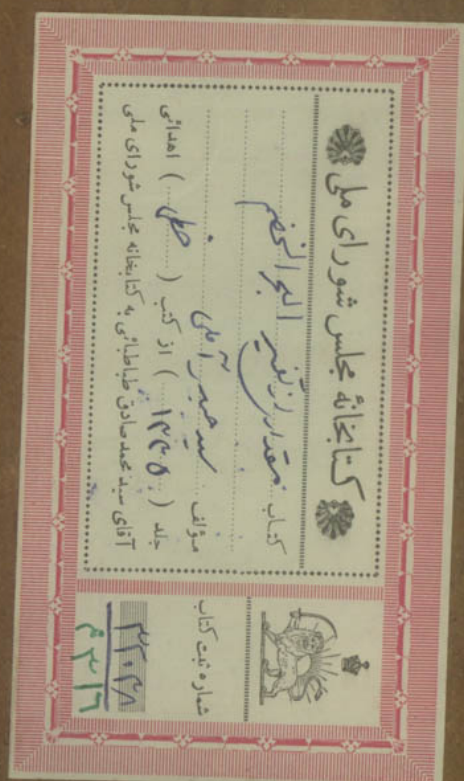 کتابخانهٔ مجلس شورای ملی
کتاب مقداری از تفسیر البحر الخضم
مؤلف سید حیدر آملی
جلد (۱۲۴۵) از کتب (خطی) اهدائی
آقای سید محمد صادق طباطبائی به کتابخانه مجلس شورای ملی
شماره ثبت کتاب